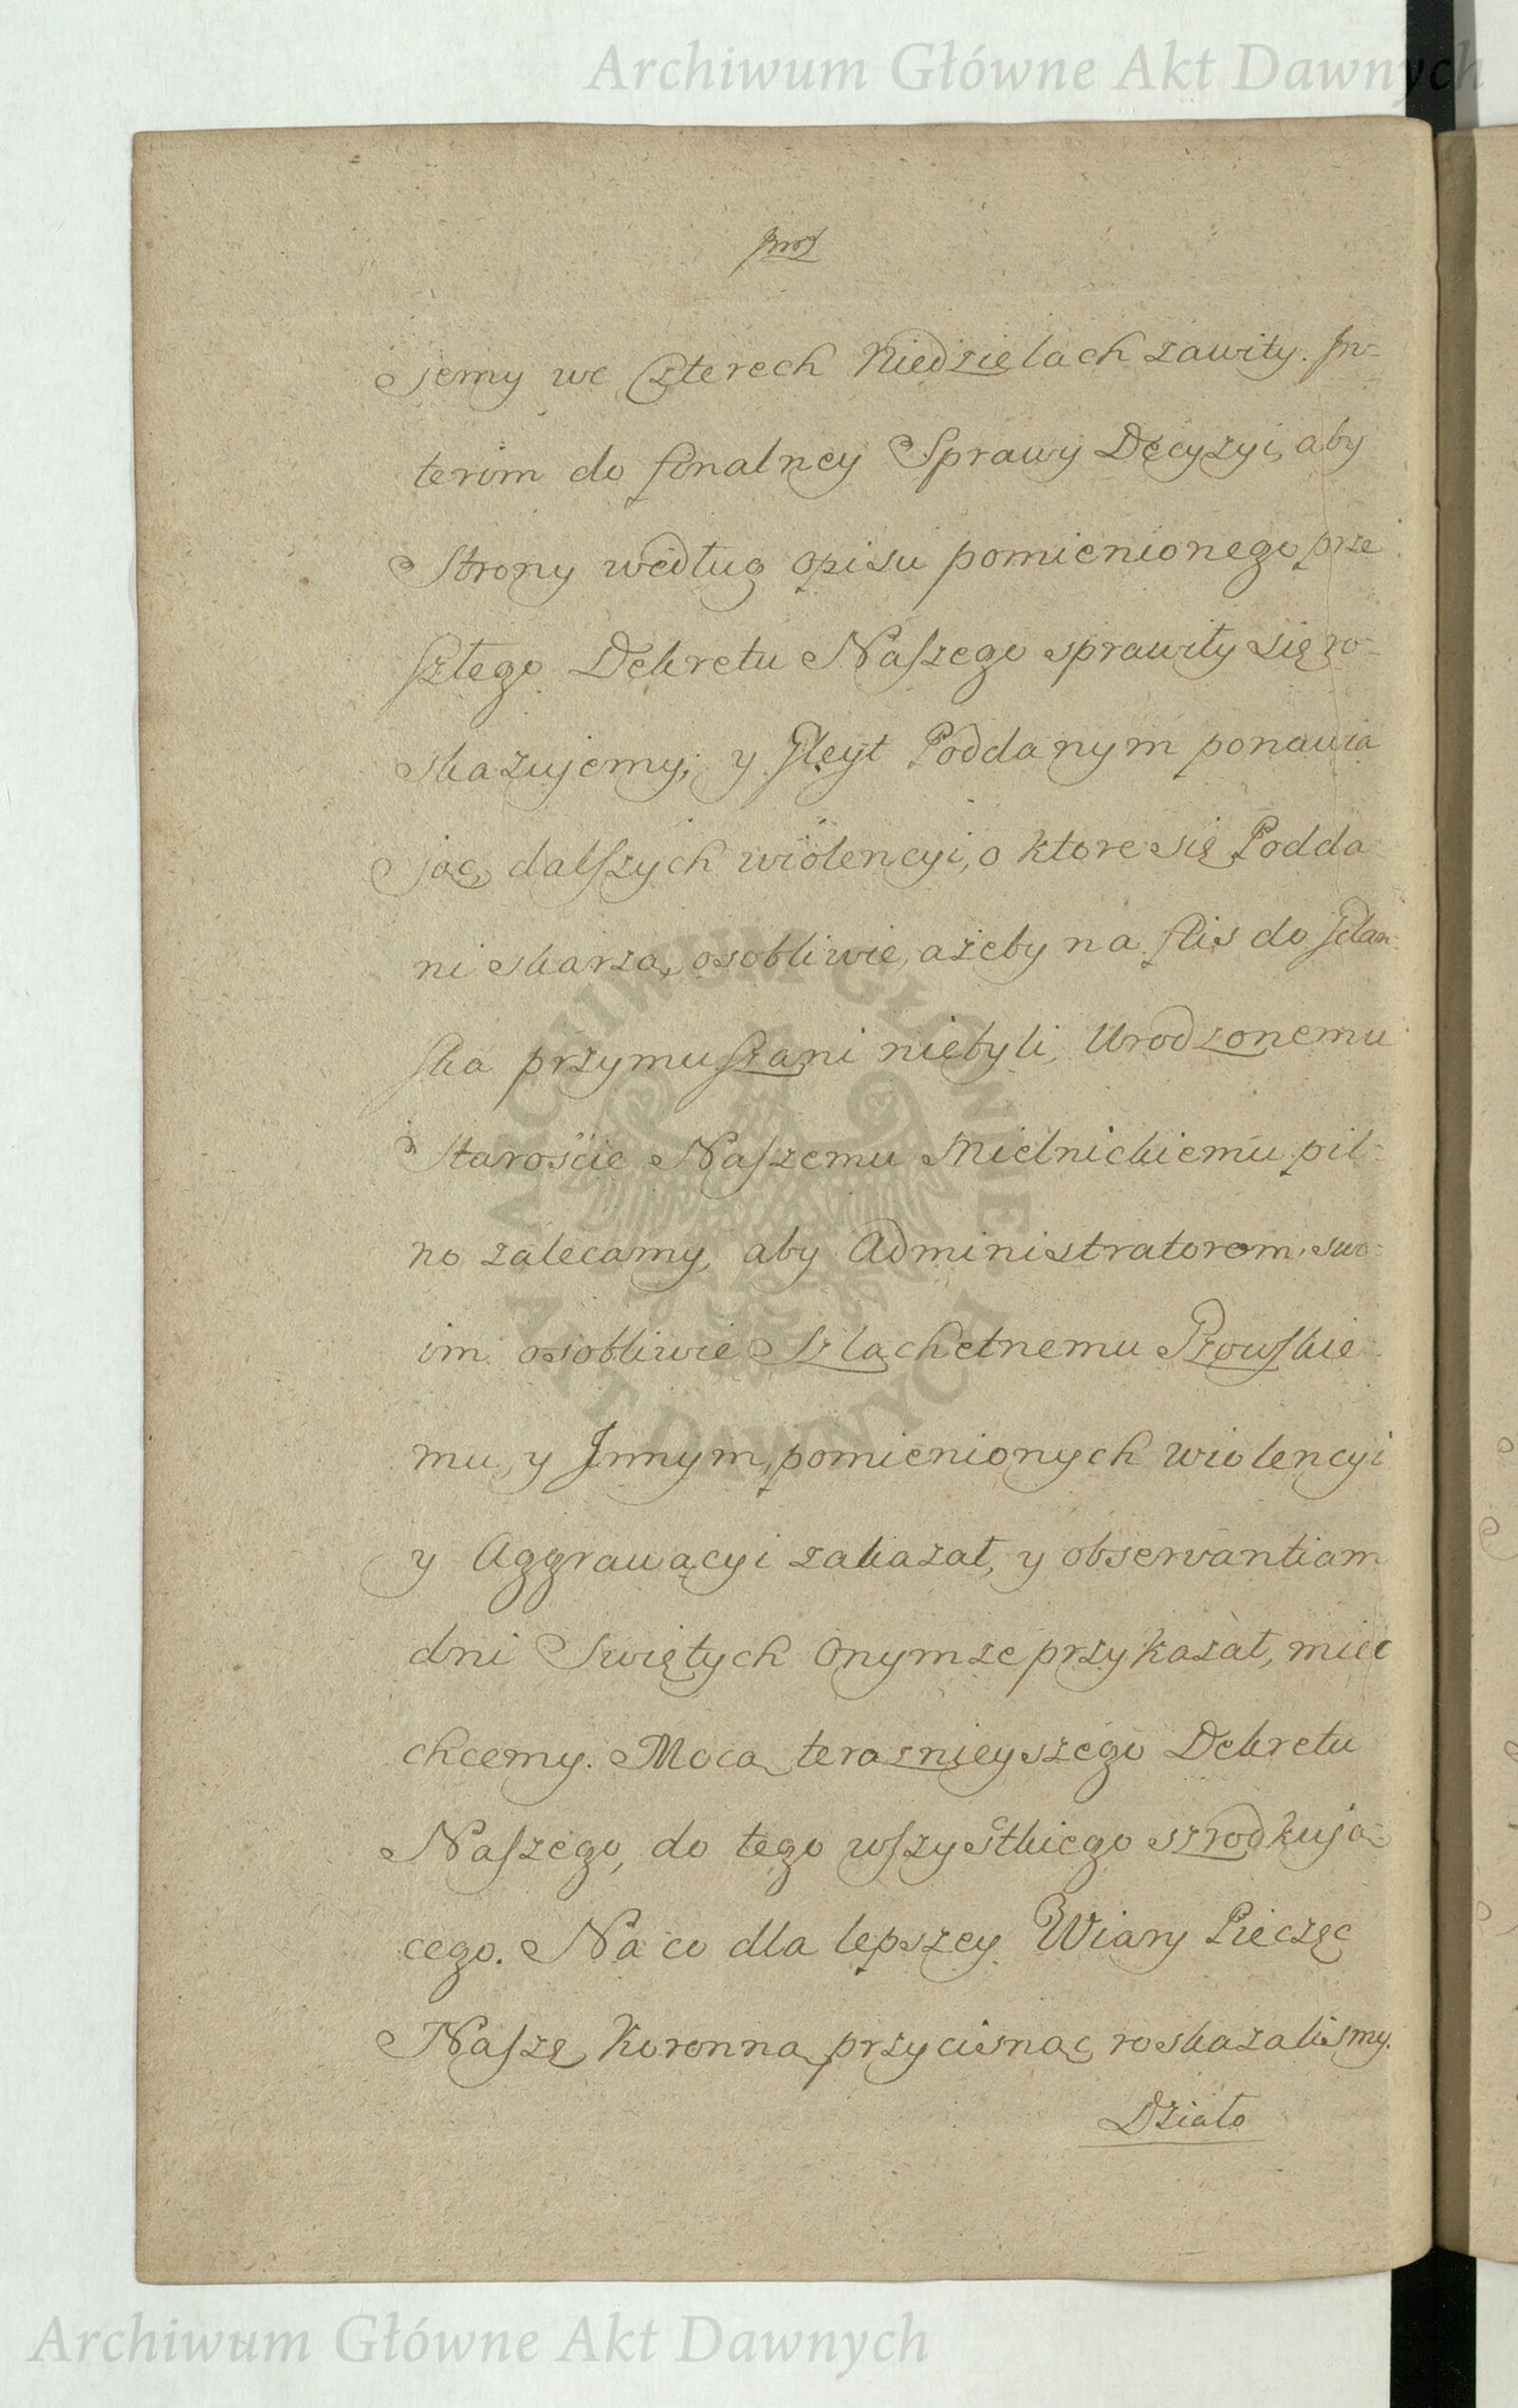 Archiwum Główne Akt Dawnych
jemy we Czterech Niedzielach zawity. In-
terim do finalney Sprawy Decyzyi, aby
Strony według opisu pomienionego prze
szłego Dekretu Naszego sprawiły się ro-
skazujemy; y Gleyt Poddanym ponawia
jąc, dalszych wiolencyi, o ktore się Podda
ni skarzą, osobliwie, ażeby na flis do Gdan-
ska przymuszani niebyli, Urodzonemu
Starośćie Naszemu Mielnickiemu pil-
no zalecamy, aby Administratorom swo-
im osobliwie Szlachetnemu Rzowskie
mu, y Innym, pomienionych wiolencyi
y Aggrawacyi zakazał, y observantiam
dni Swiętych Onymze przykazał, miec
chcemy. Mocą teraznieyszego Dekretu
Naszego, do tego wszystkiego szrodkują-
cego. Na co dla lepszey Wiary Pieczęc
Naszę Koronną przycisnąc roskazalismy.
Działo
ARCHIWUM GŁÓWNE AKT DAWNYCH
Archiwum Główne Akt Dawnych